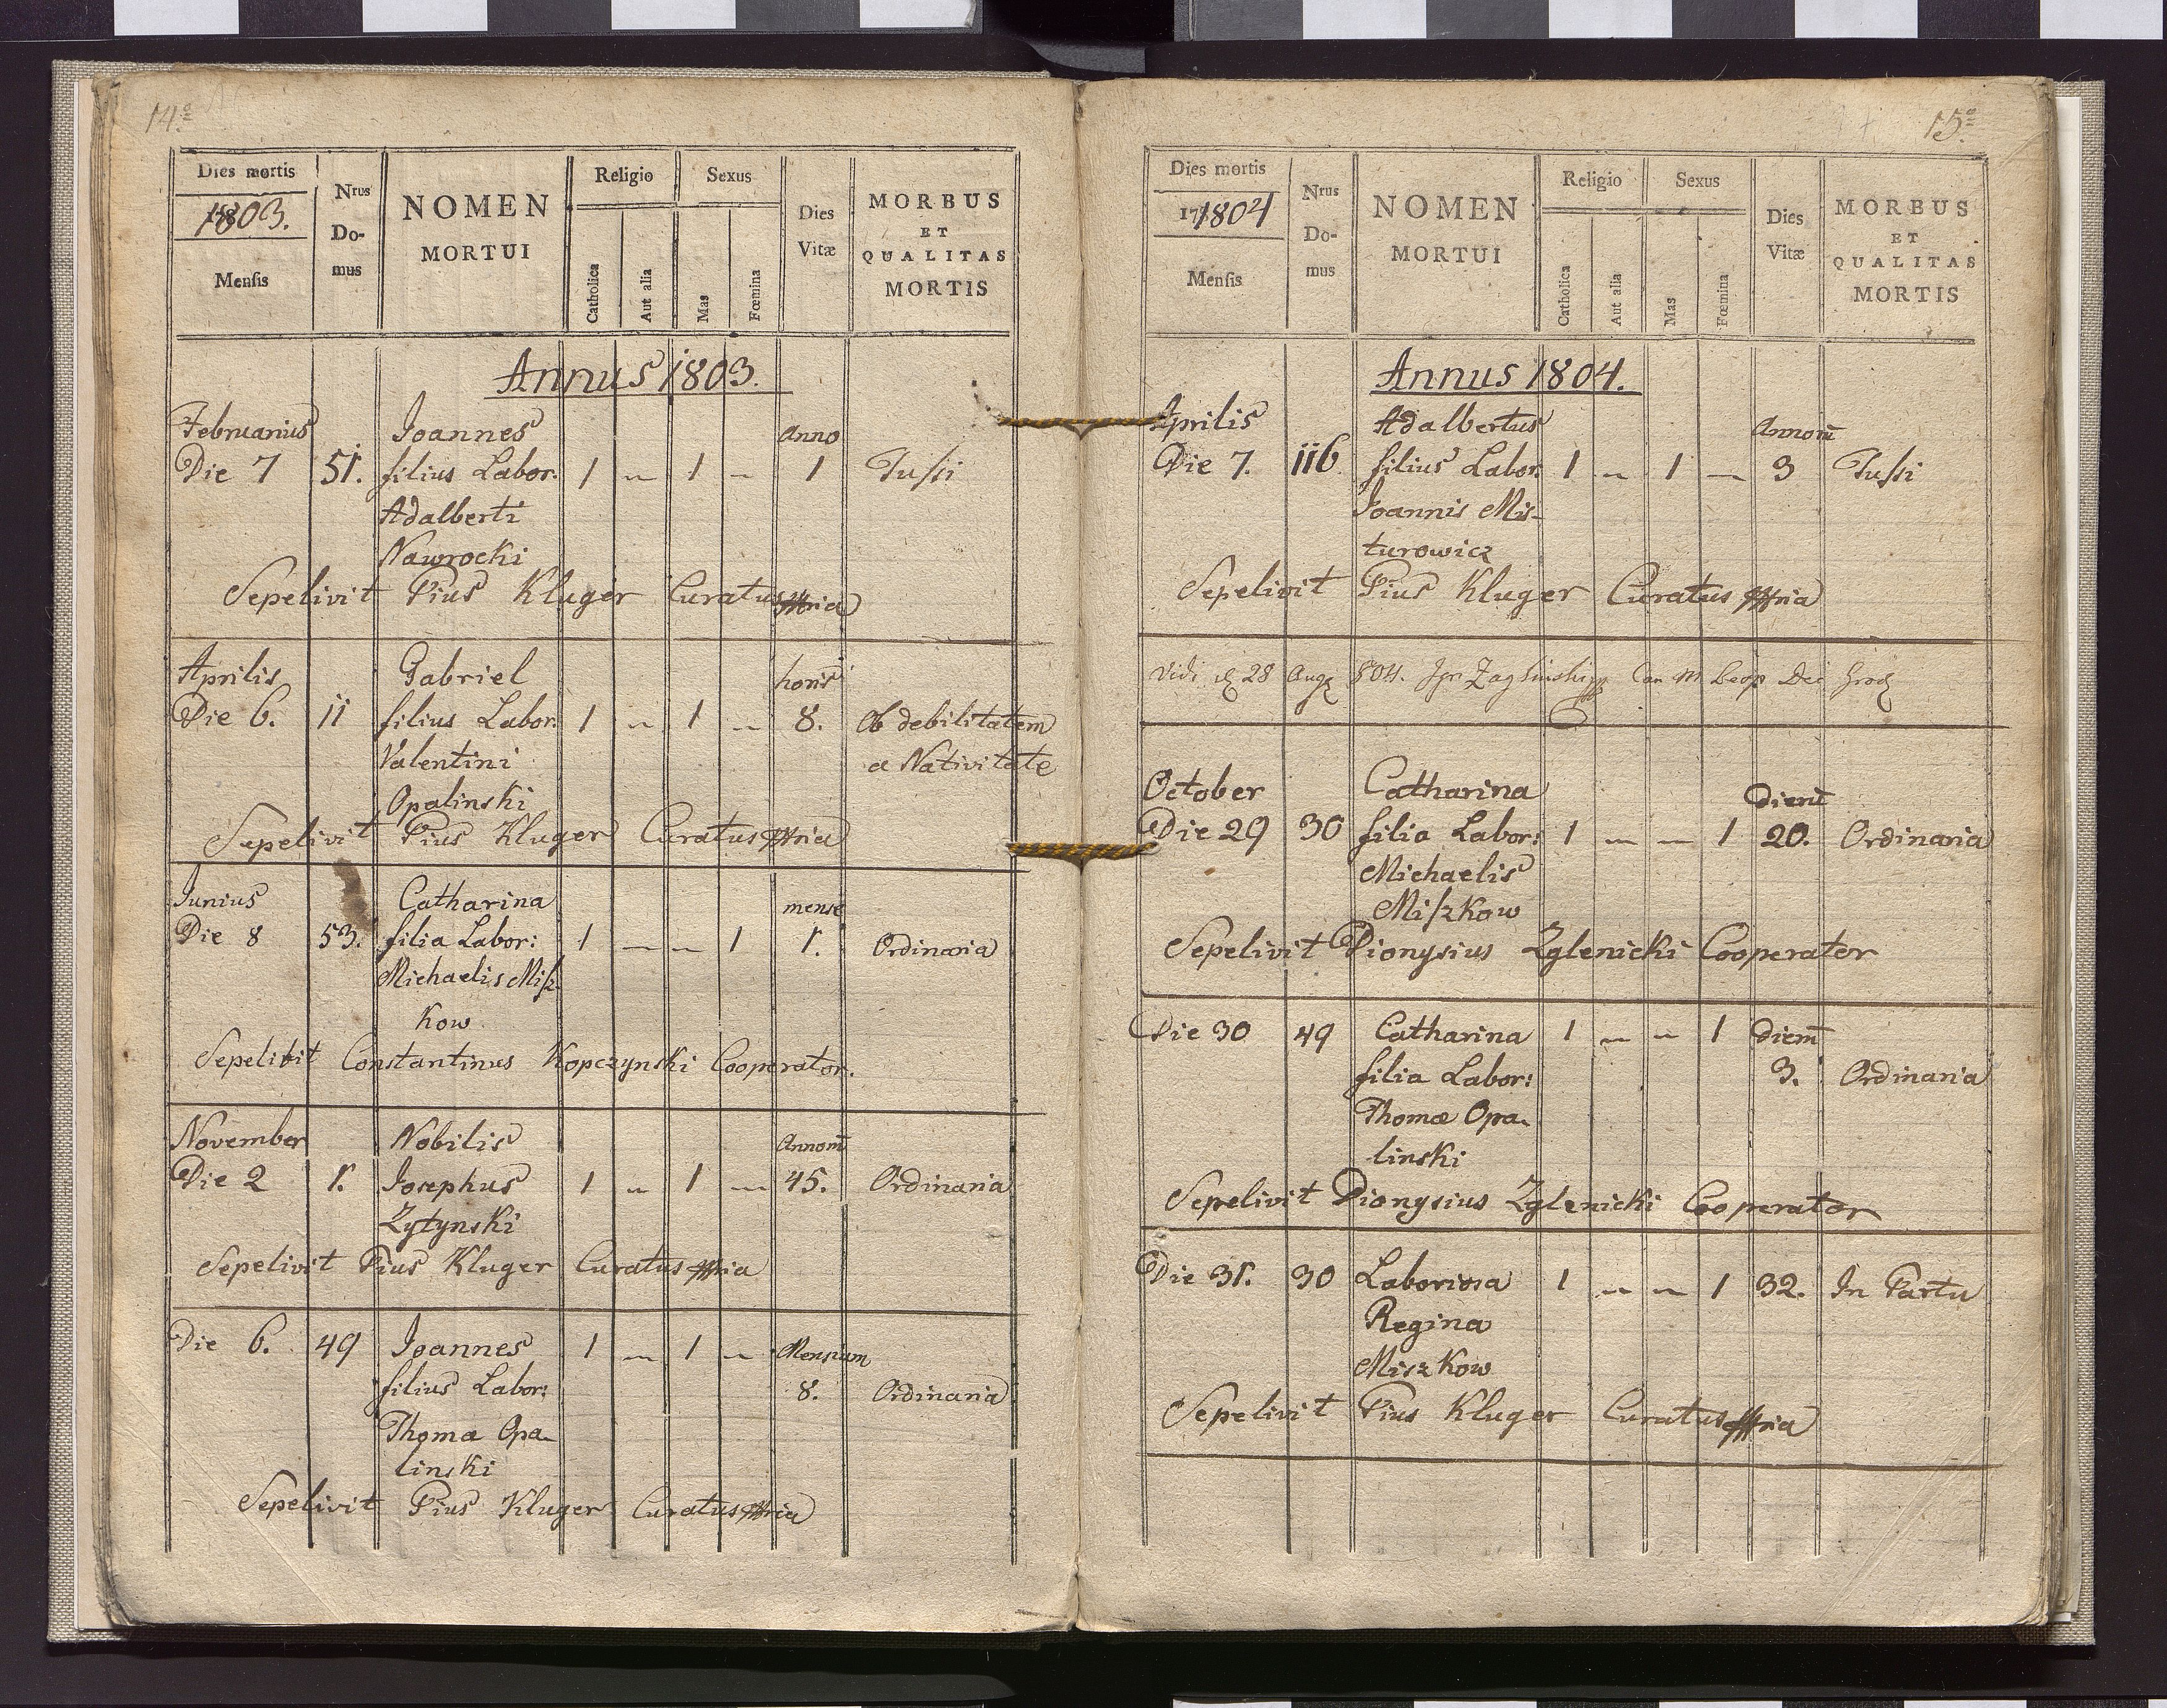 14a
Dies mortis
1803.
Mensis
Nrus
Do-
mus
NOMEN
MORTUI
Religio
Catholica
Aut alia
Sexus
Mas
Fœmina
Dies
Vitæ
MORBUS
ET
QUALITAS
MORTIS
Annus 1803.
Februarius Joannes Anno
Die 7 51. filius Labor. 1 – 1 – 1 Tussi
Adalberti
Nawrocki
Sepelivit Pius Kluger Curatus mpria
Aprilis Gabriel horis
Die 6. 11 filius Labor. 1 – 1 – 8. Ob debilitatem
Valentini a Nativitate
Opalinski
Sepelivit Pius Kluger Curatus mpria
Junius Catharina mense
Die 8 53. filia Labor: 1 – – 1 1. Ordinaria
Michaelis Misz
kow
Sepelivit Constantinus Kopczynski Cooperator.
November Nobilis Annorũ
Die 2 1. Josephus 1 – 1 – 45. Ordinaria
Zytynski
Sepelivit Pius Kluger Curatus mpria
Die 6. 49 Joannes 1 – 1 – Mensium
filius Labor: 8. Ordinaria
Thoma Opa-
linski
Sepelivit Pius Kluger Curatus mpria
15a
Dies mortis
17 1804
Mensis
Nrus
Do-
mus
NOMEN
MORTUI
Religio
Catholica
Aut alia
Sexus
Mas
Fœmina
Dies
Vitæ
MORBUS
ET
QUALITAS
MORTIS
Annus 1804.
Aprilis Adalbertus Annorũ
Die 7. 116 filius Labor. 1 – 1 – 3 Tussi
Joannis Mis-
turowicz
Sepelivit Pius Kluger Curatus mpria
Vidi 28 Aug 804. Can M Leop Dec Grod
October Catharina Dierũ
Die 29 30 filia Labor: 1 – – 1 20. Ordinaria
Michaelis
Miszkow
Sepelivit Dionysius Zglenicki Cooperator
Die 30 49 Catharina 1 – – 1 Dierũ
filia Labor: 3. Ordinaria
Thomæ Opa-
linski
Sepelivit Dionysius Zglenicki Cooperator
Die 31. 30 Laboriosa 1 – – 1 32. In Partu
Regina
Miszkow
Sepelivit Pius Kluger Curatus mpria